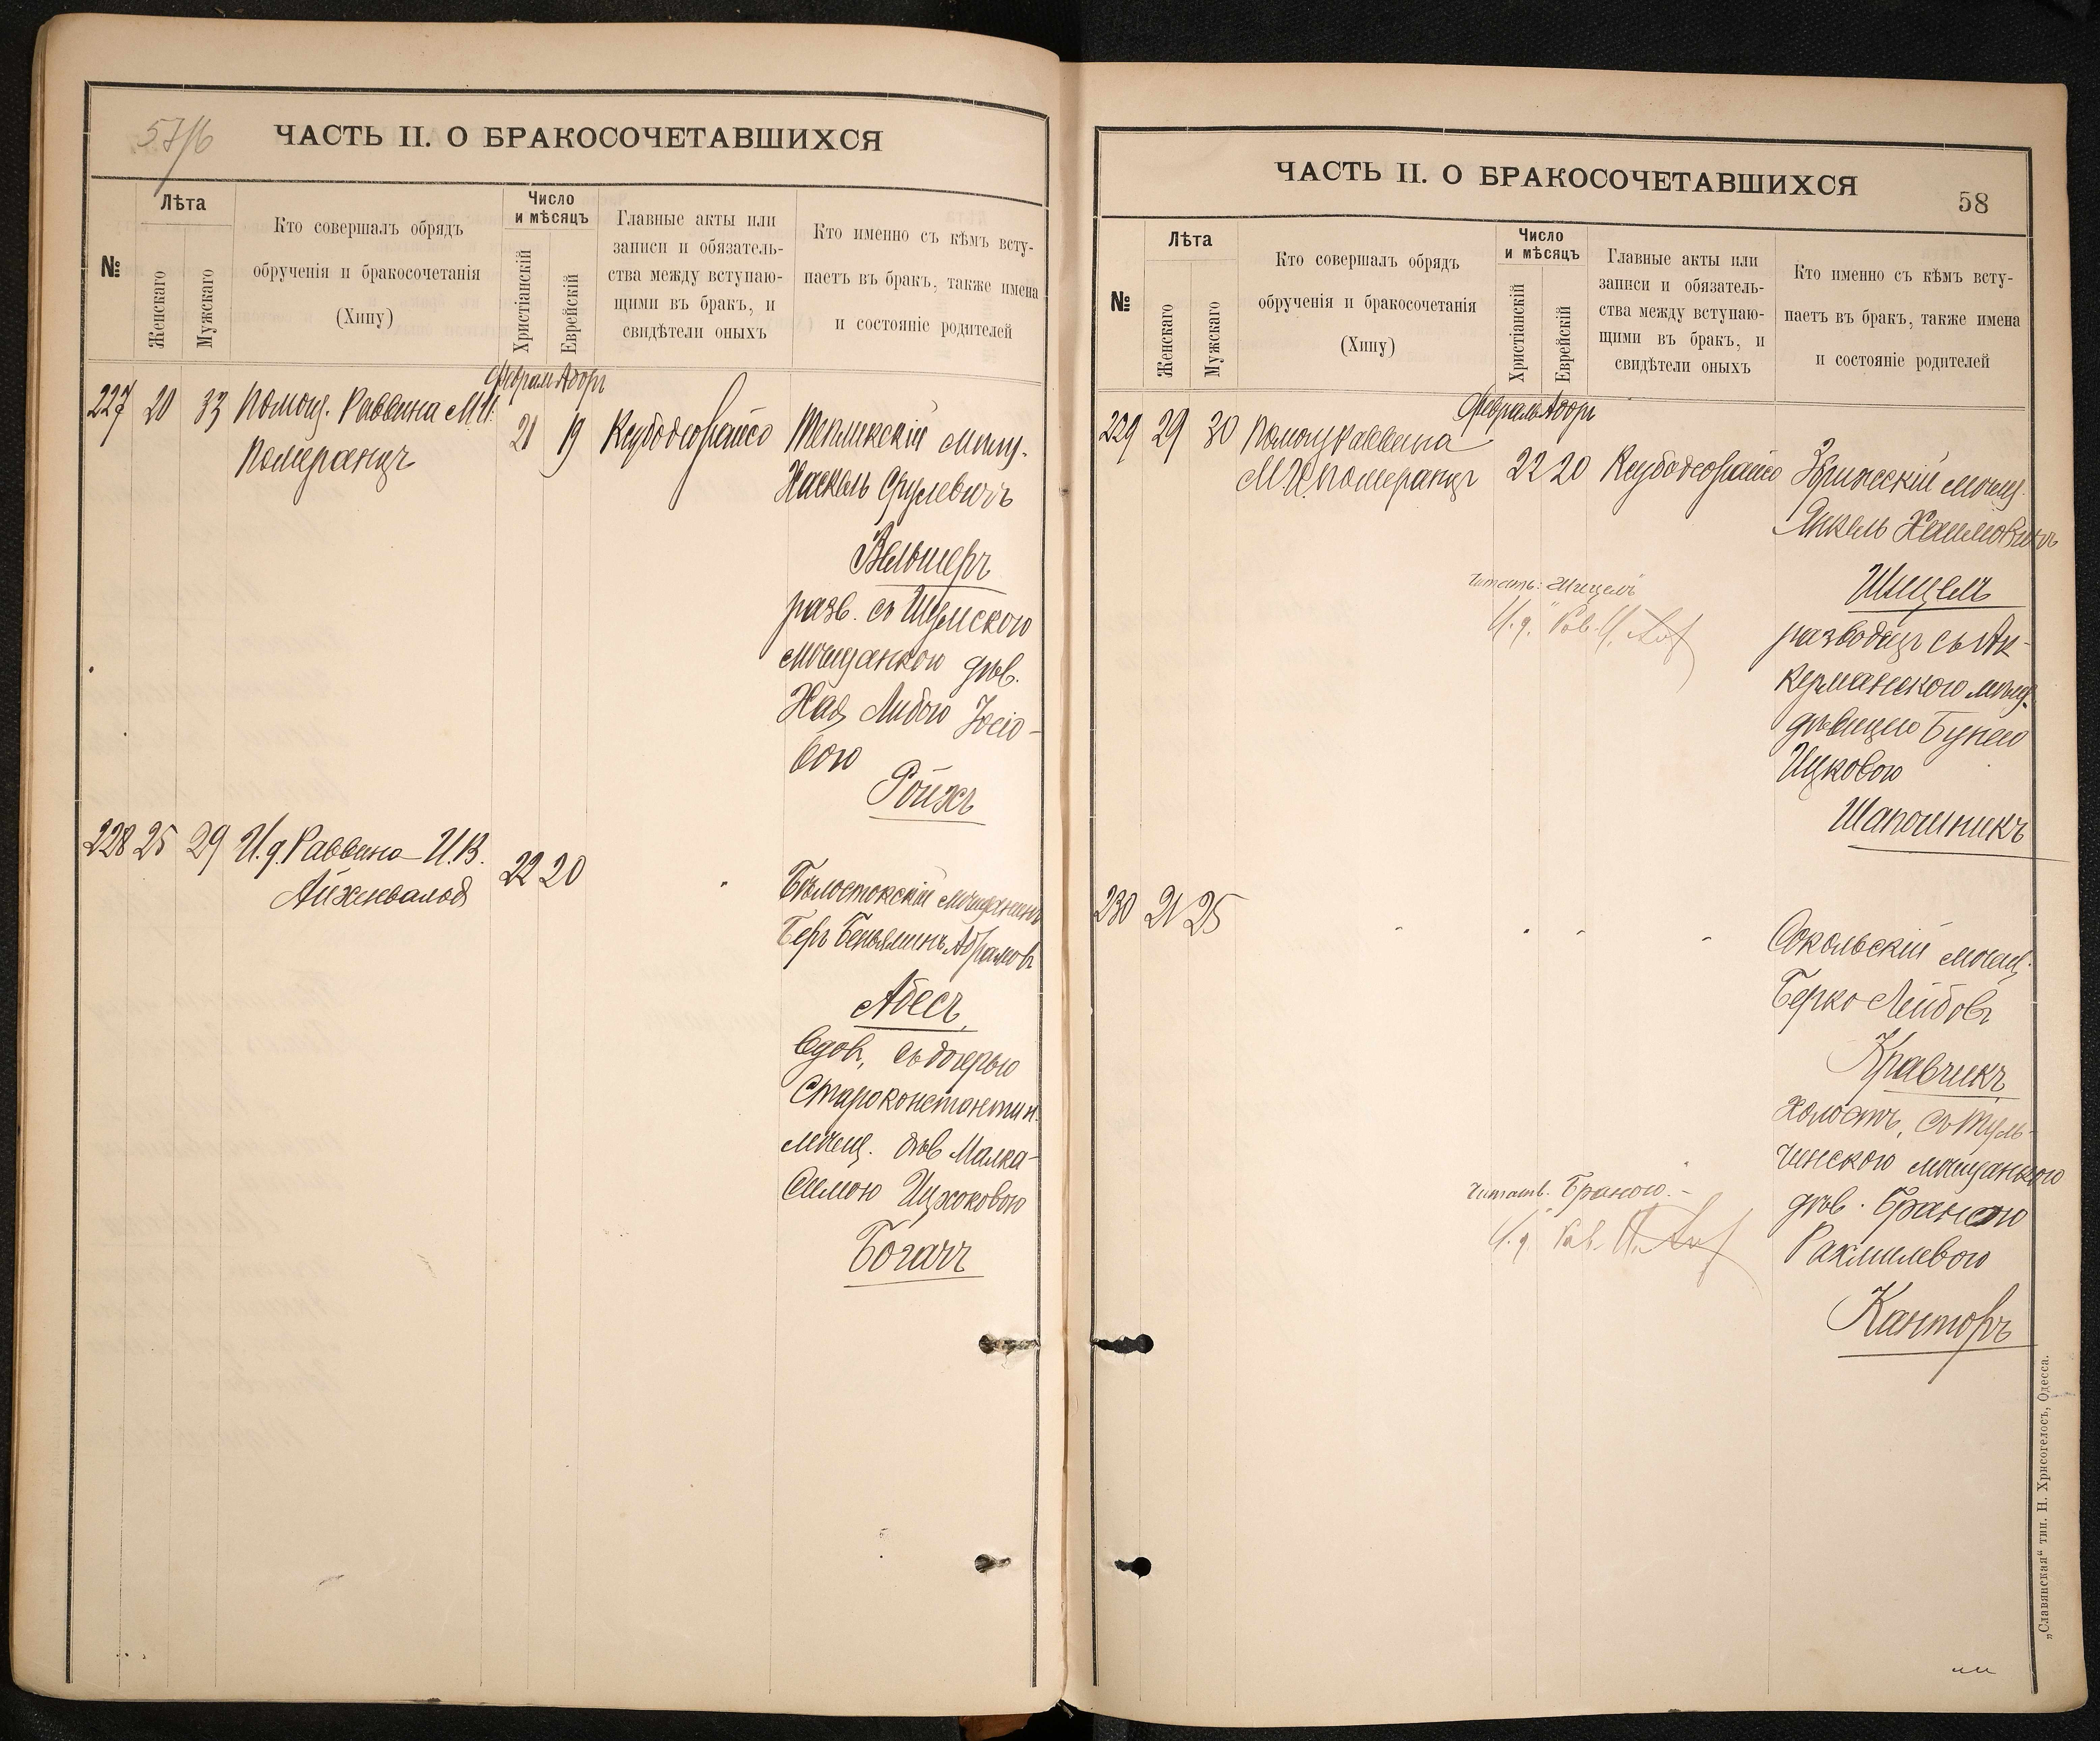 57/6
ЧАСТЬ II. О БРАКОСОЧЕТАВШИХСЯ
№
Лѣта
Женскаго
Мужскаго
Кто совершалъ обрядъ
обрученія и бракосочетанія
(Хипу)
Число
и мѣсяцъ
Христіанскій
Еврейскій
Главные акты или
записи и обязатель-
ства между вступаю-
щими въ бракъ, и
свидѣтели оныхъ
Кто именно съ кѣмъ всту-
паетъ въ бракъ, также имена
и состояніе родителей
227 20 33 Помощ. Раввина М.И.
Померанцъ
Февраль Адоръ
21 19
Тепликскій мѣщ.
Хаскель Срулевичъ
Вельшеръ
разв. съ Шумскою
мѣщанкою дѣв.
Хая Либою Іосіо-
вою
Ройхъ
228 25 29 И. д. Раввина И.В.
Айхенвальд
22 20
Бѣлостокскій мѣщанинъ
Беръ Беньяминъ Абрамовъ
Абесъ
Вдов., съ дочерью
Староконстантин.
мѣщ. дѣв Малка-
Симою Ицхоковою
Богачъ
ЧАСТЬ II. О БРАКОСОЧЕТАВШИХСЯ
58
№
Лѣта
Женскаго
Мужскаго
Кто совершалъ обрядъ
обрученія и бракосочетанія
(Хипу)
Число
и мѣсяцъ
Христіанскій
Еврейскій
Главные акты или
записи и обязатель-
ства между вступаю-
щими въ бракъ, и
свидѣтели оныхъ
Кто именно съ кѣмъ всту-
паетъ въ бракъ, также имена
и состояніе родителей
229 29 30 Помощ Раввина
М.И. Померанцъ
Февраль Адоръ
22 20
мѣщ.
Янкель Хаимовичъ
Шицель
разводецъ съ Ак-
керманскою мѣщ.
дѣвицею Бунею
Ицковою
Шапошникъ
Читать: Шицель
И. д. Рав.
230 21 25
Сокольскій мѣщ.
Берко Лейбовъ
Кравчикъ
холостъ, съ Туль-
чинскою мѣщанкою
дѣв. Браною
Рахмилевою
Канторъ
Читать: Браною.
И. д. Рав.
„Славянская“ тип. Н. Хрисогелосъ, Одесса.